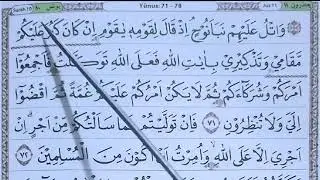 Surah 10 يونس ١٠ Yūnus: 71 - 78 Juz 11
وَاتْلُ عَلَيْهِمْ نَبَأَ نُوحٍ إِذْ قَالَ لِقَوْمِهِ يٰقَوْمِ إِنْ كَانَ كَبُرَ عَلَيْكُمْ
مَقَامِي وَتَذْكِيرِي بِاٰيٰتِ اللّٰهِ فَعَلَى اللّٰهِ تَوَكَّلْتُ فَأَجْمِعُوا
أَمْرَكُمْ وَشُرَكَاءَكُمْ ثُمَّ لَا يَكُنْ أَمْرُكُمْ عَلَيْكُمْ غُمَّةً ثُمَّ اقْضُوا
إِلَيَّ وَلَا تُنْظِرُونِ ﴿٧١﴾ فَإِنْ تَوَلَّيْتُمْ فَمَا سَأَلْتُكُمْ مِنْ أَجْرٍ إِنْ
أَجْرِيَ إِلَّا عَلَى اللّٰهِ وَأُمِرْتُ أَنْ أَكُونَ مِنَ الْمُسْلِمِينَ ﴿٧٢﴾